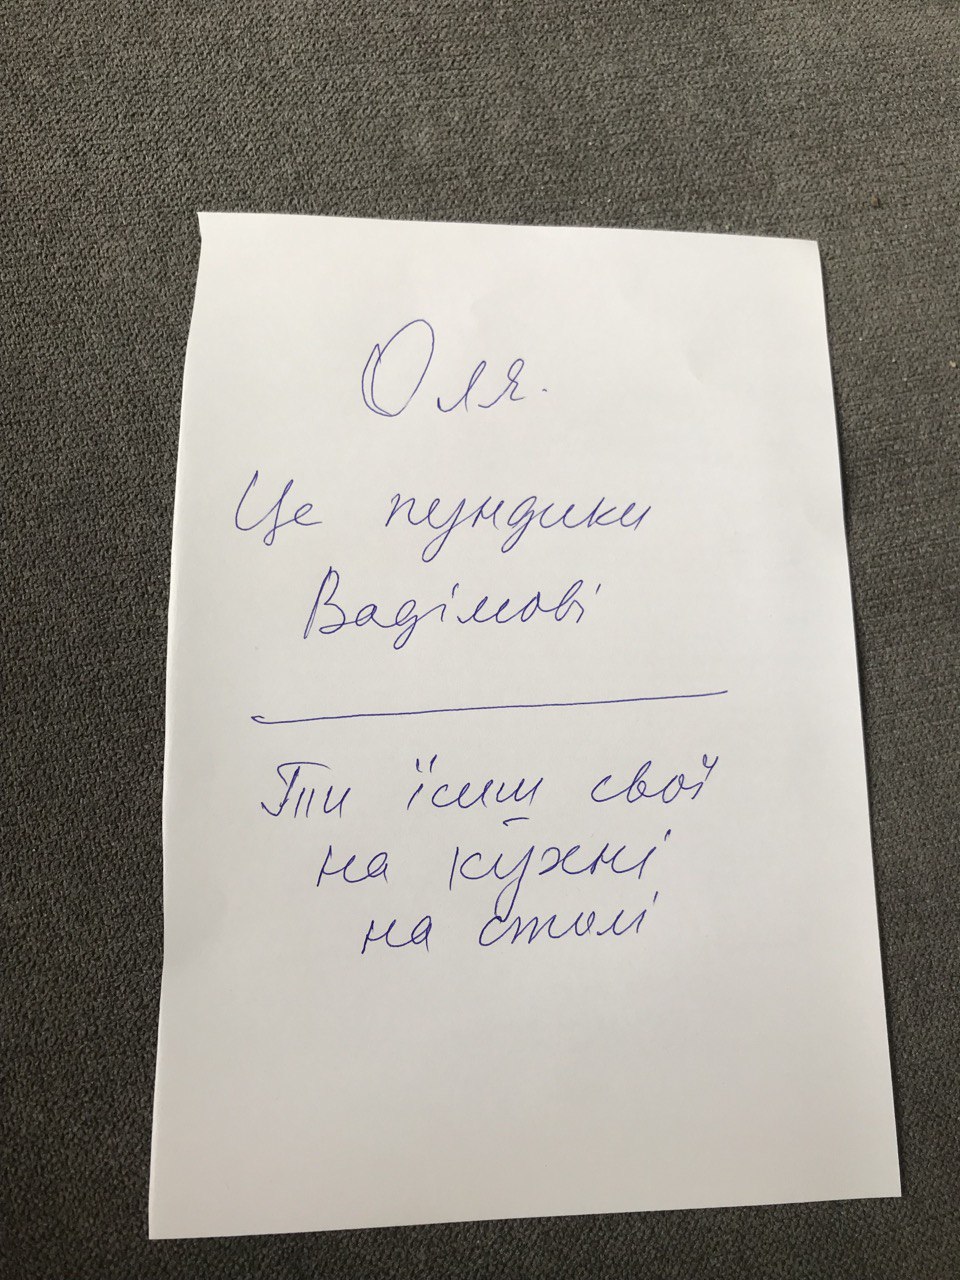 Оля.
Це пундики
Вадімові
Ти їсиш свої
на кухні
на столі